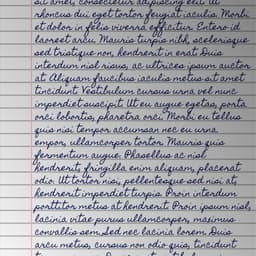 sit amet, consectetur adipiscing elit. Ut
rhoncus dui eget tortor feugiat iaculis. Morbi
et dolor in felis viverra efficitur. Entero id
laoreet arcu. Mauris turpis nibh, scelerisque
sed tristique non, hendrerit in erat. Duis
interdum nisl risus, ac ultrices ipsum auctor
at. Aliquam faucibus iaculis metus sit amet
tincidunt. Vestibulum cursus urna vel nunc
imperdiet suscipit. Ut eu augue egestas, porta
orci lobortis, pharetra orci. Morbi eu tellus
quis nisi tempor accumsan nec eu urna.
empor, ullamcorper tortor. Mauris quis
fermentum augue. Phasellus ac nisl
hendrerit, fringilla enim aliquam, placerat
odio. Ut tortor nisi, pellentesque sed nisi at,
hendrerit imperdiet turpis. Proin interdum
porttitor metus at hendrerit. Proin ipsum nisl,
lacinia vitae purus ullamcorper, maximus
convallis sem. Sed nec lacinia lorem. Duis
arcu metus, cursus non odio quis, tincidunt